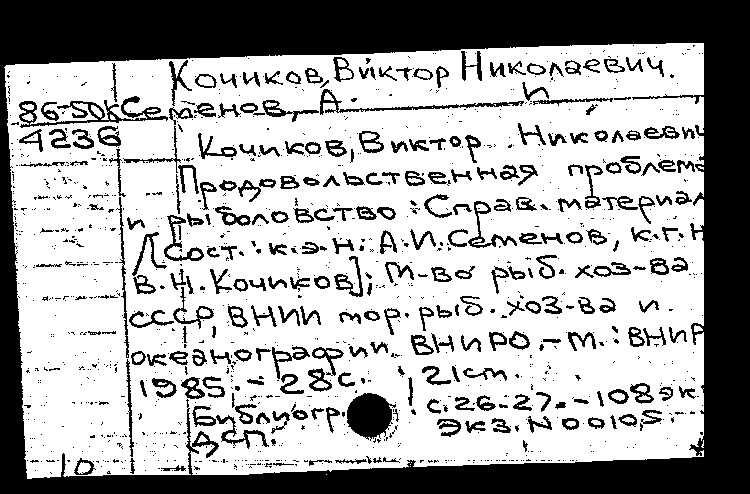 Кочиков, Виктор Николаевич.
86-50к Семенов, А. и
4236
Кочиков, Виктор Николаевич
Продовольственная проблема
и рыболовство : Справ. материал
/[Сост.: к.э.н. А.И.Семенов, к.г.н
В.Н.Кочиков]; М-во рыб. хоз-ва
СССР, ВНИИ мор. рыб. хоз-ва и
океанографии ВНИРО. - М. : ВНИР
1985. - 28с. ; 21см.
Библиогр. с.26-27. - 108 эк
ДСП. Экз. N 00105.
10